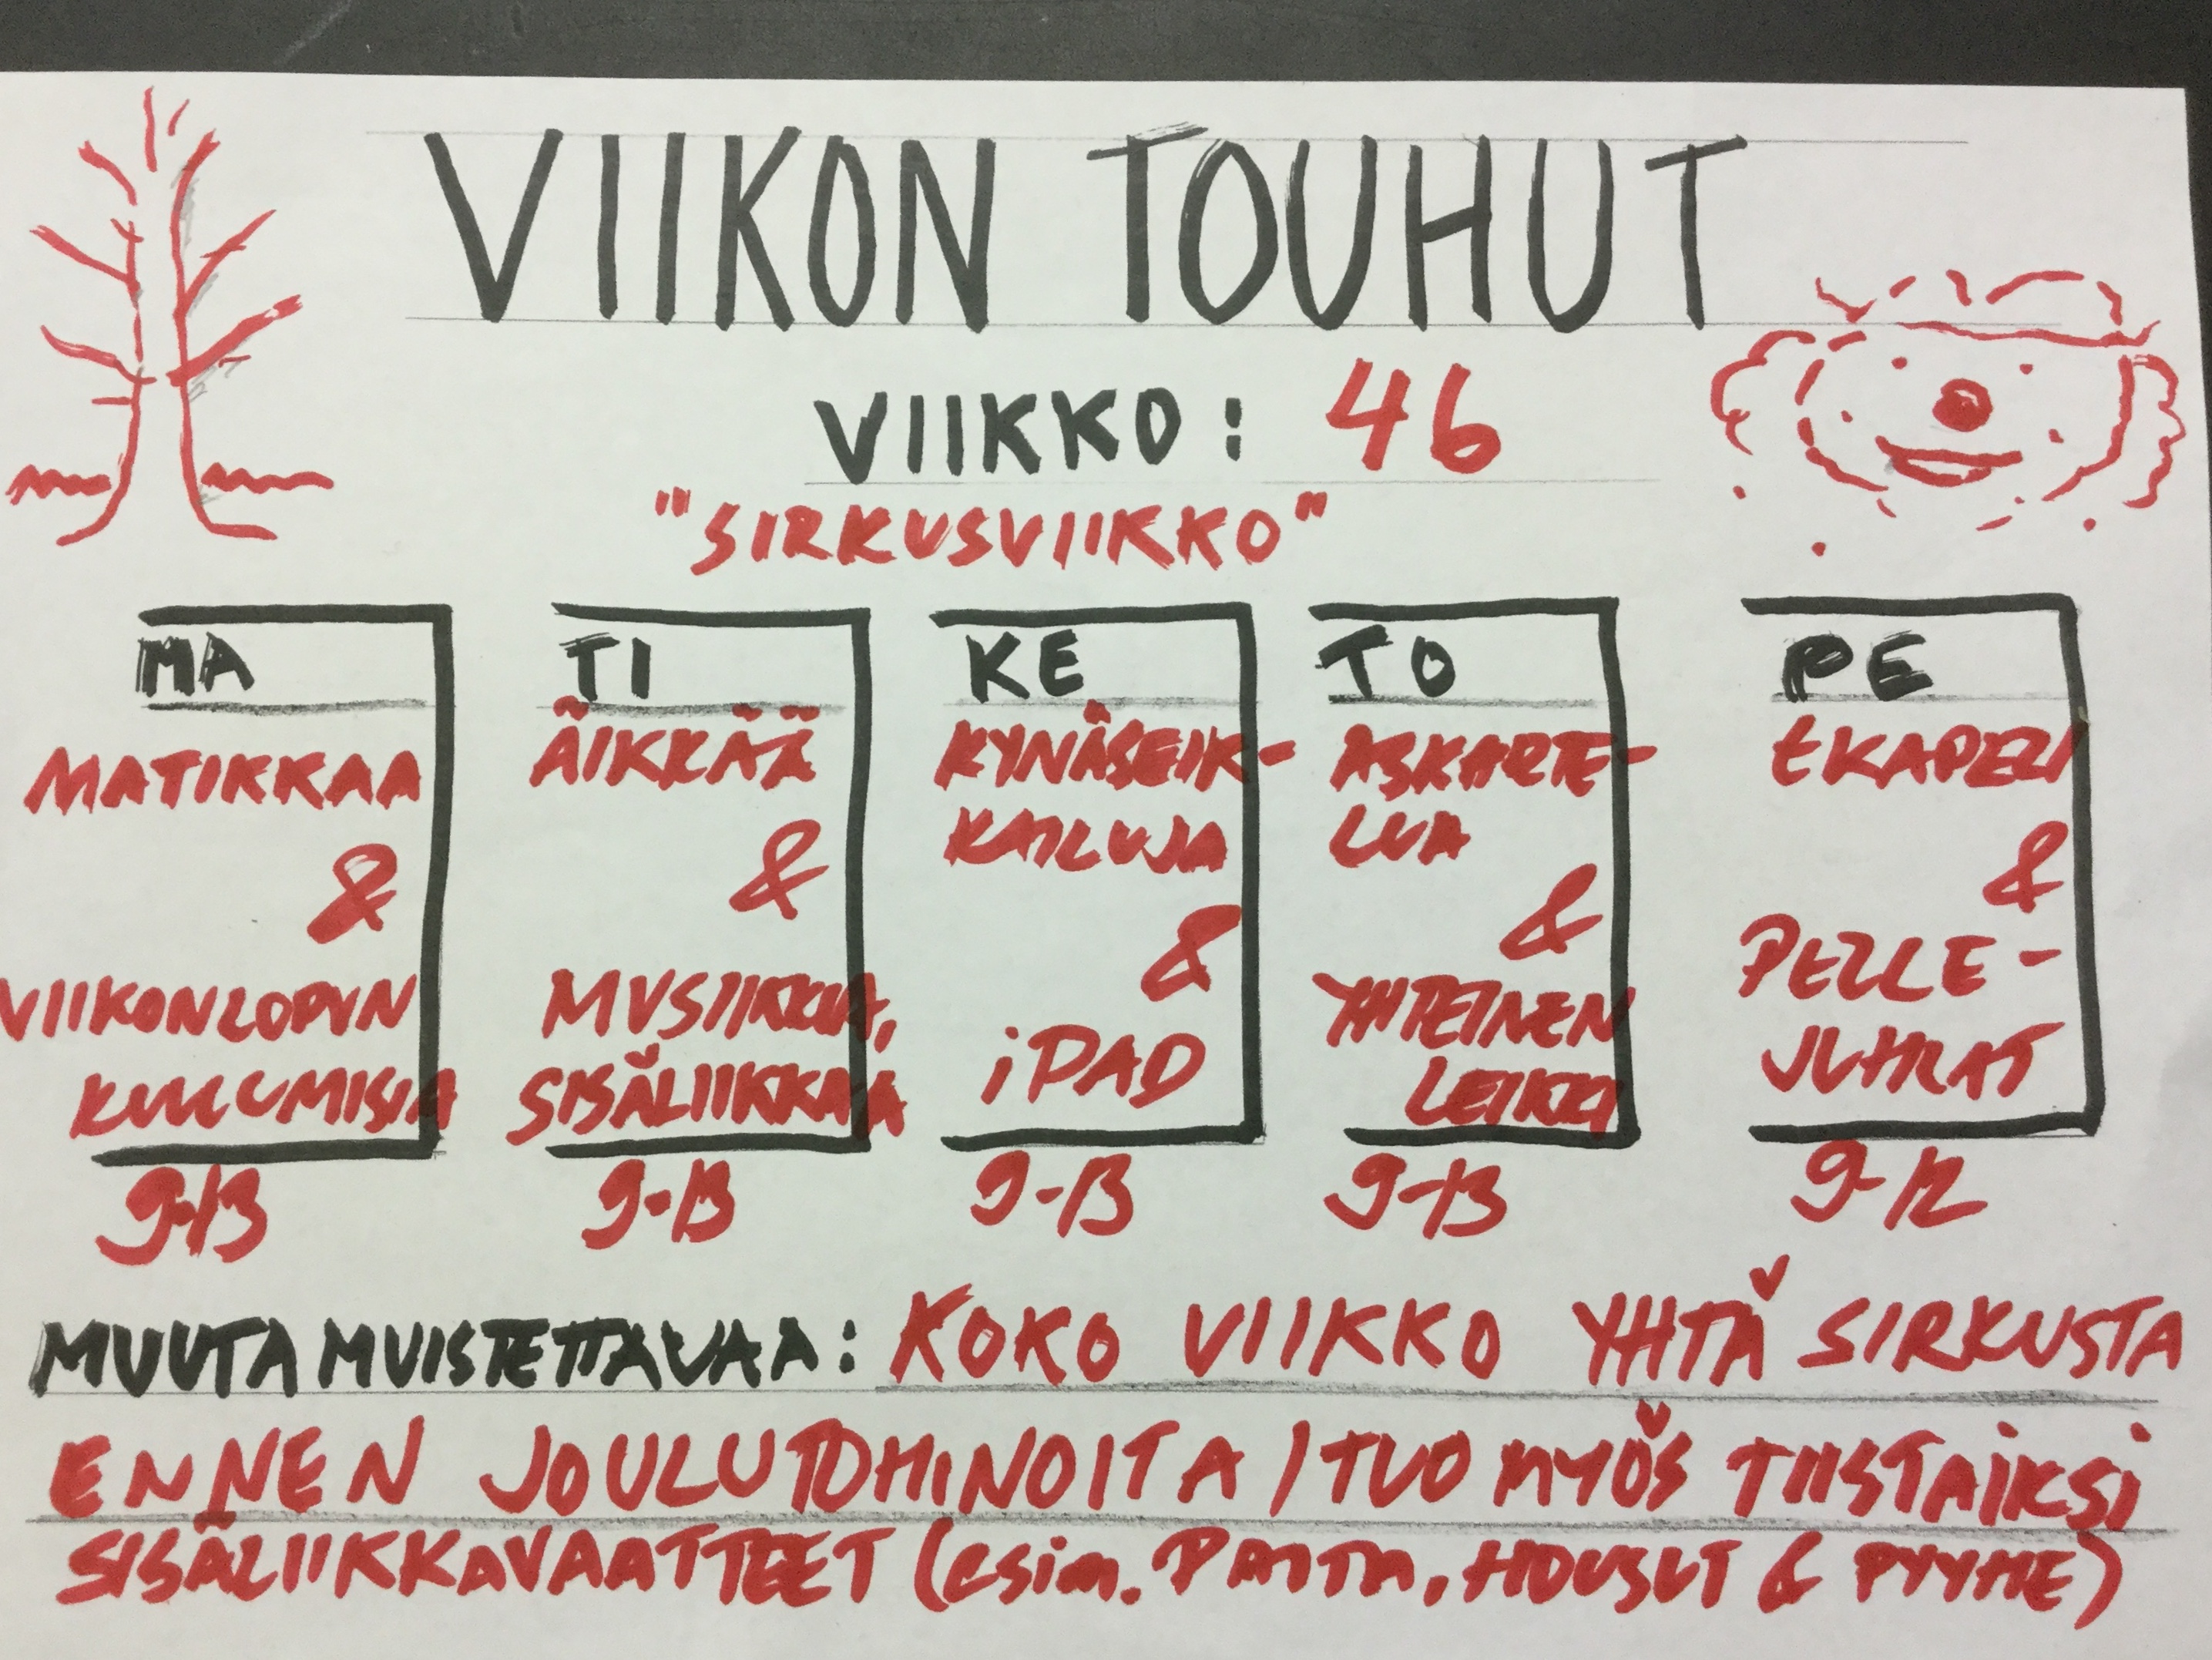 VIIKON TOUHUT
VIIKKO: 46
"SIRKUSVIIKKO"
MA
MATIKKAA
&
VIIKONLOPUN
KUULUMISIA
9-13
TI
ÄIKKÄÄ
&
MUSIIKKIA,
SISÄLIIKKAA
9-13
KE
KYNÄSEIK-
KAILUJA
&
iPAD
9-13
TO
ASKARTE-
LUA
&
YHTEINEN
LEIKKI
9-13
PE
EKAPELI
&
PELLE-
JUHLAT
9-12
MUUTA MUISTETTAVAA: KOKO VIIKKO YHTÄ SIRKUSTA
ENNEN JOULUTOHINOITA / TUO MYÖS TIISTAIKSI
SISÄLIIKKAVAATTEET (esim. PAITA, HOUSUT & PYYHE)